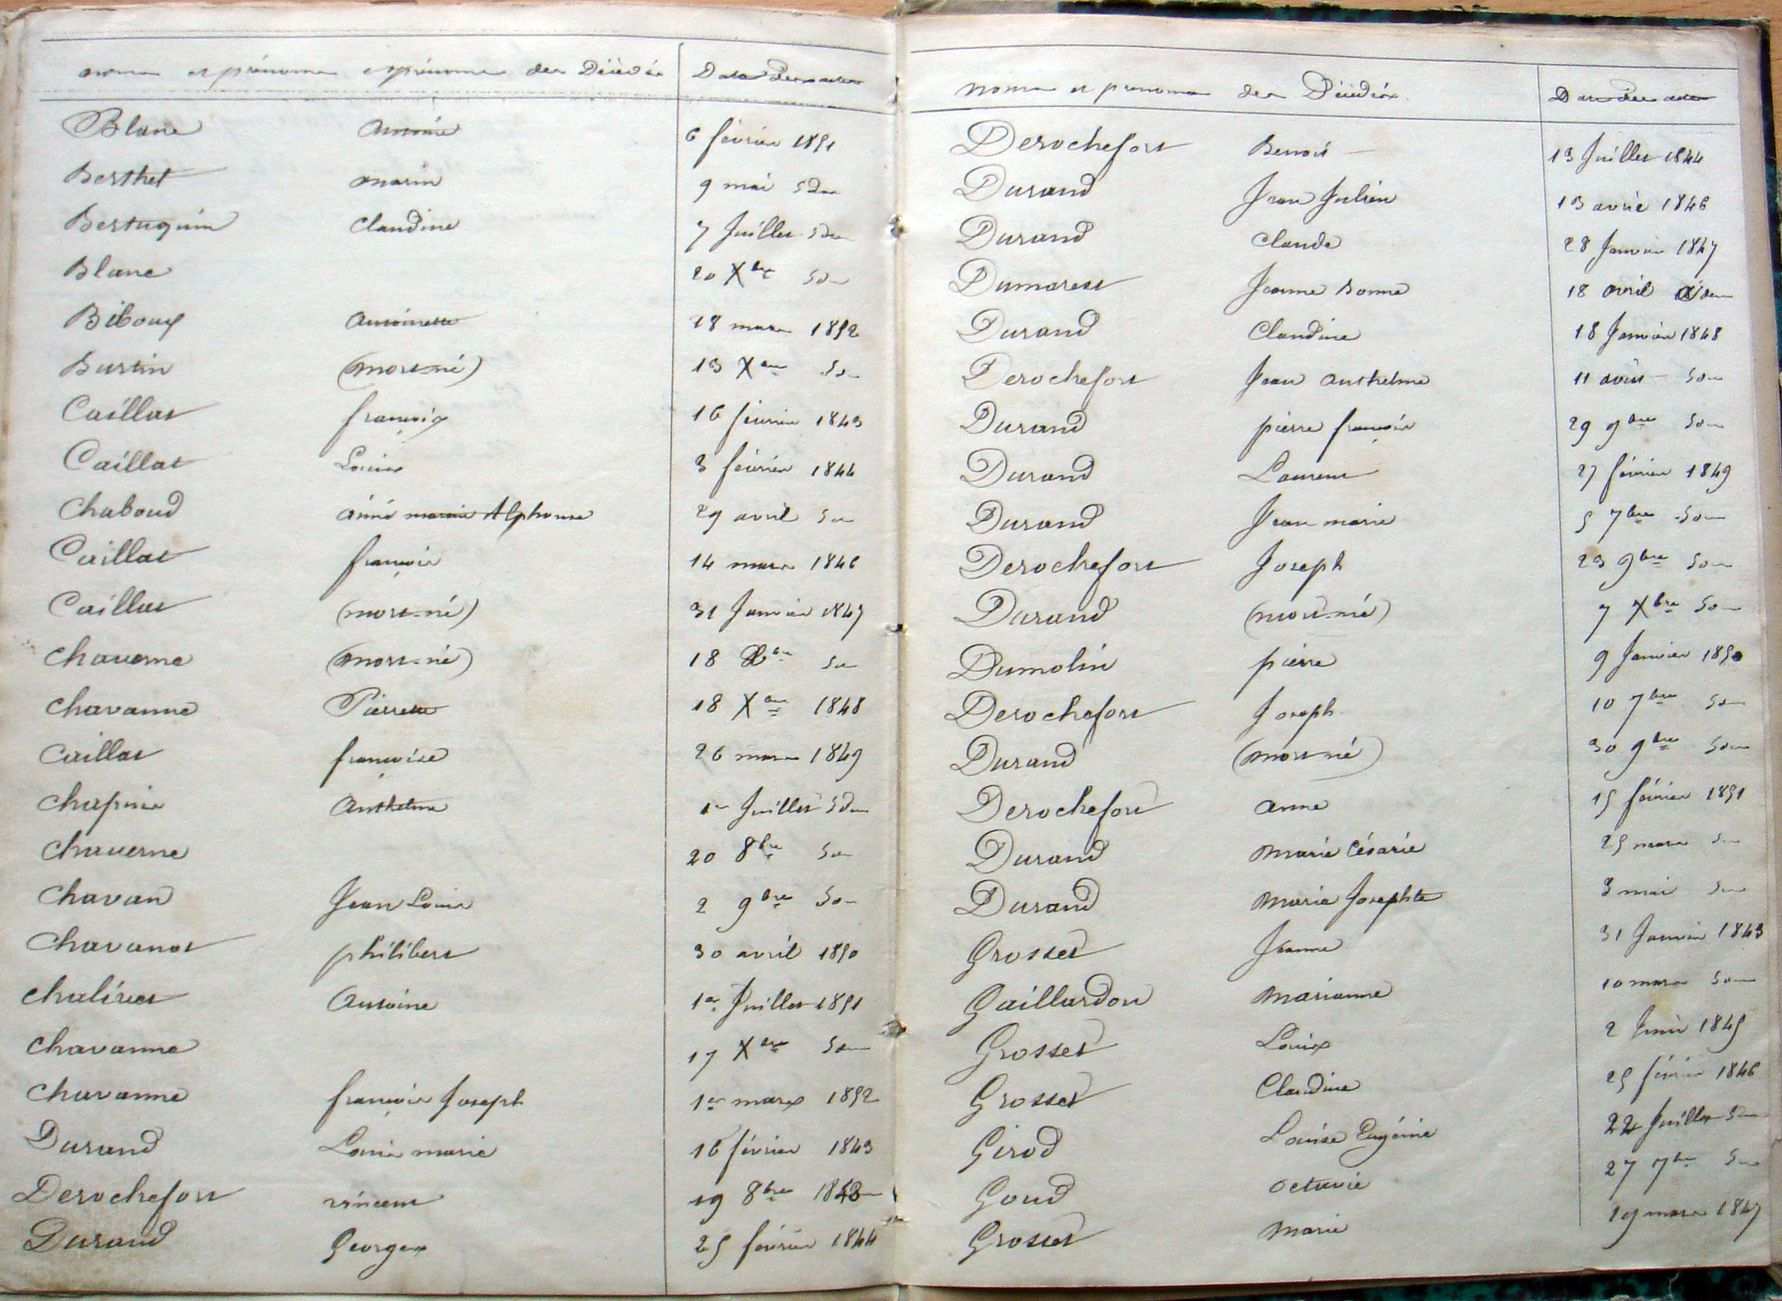 noms et prénoms et prénoms des Décédés Date des actes
Blanc Antoine 6 février 1851
Berthet marin 9 mai Idem
Bertuquin Claudine 7 Juillet Idem
Blanc 20 Xbre Idem
Bibouy Antoinette 18 mars 1852
Burtin (mort-né) 13 Xbre Idem
Caillat françois 16 février 1843
Caillat Louis 3 février 1844
Chaboud aimé marie Alphonse 29 avril Idem
Caillat françois 14 mars 1846
Caillat (mort-né) 31 Janvier 1847
Chaverne (mort-né) 18 Xbre Idem
Chavanne Pierrette 18 Xbre 1848
Caillat françoise 26 mars 1849
Chapuis Anthelme 1er Juillet Idem
Chaverne 20 8bre Idem
Chavan Jean Louis 2 9bre Idem
Chavanot philibert 30 avril 1850
Chalivet Antoine 1er Juillet 1851
Chavanne 17 Xbre Idem
Chavanne françois Joseph 1er mars 1852
Durand Louis marie 16 février 1843
Derochefort vincent 19 8bre 1843
Durand Georges 25 février 1844
noms et prenoms des Décédés Date des actes
Derochefort Benoit 13 Juillet 1844
Durand Jean Julien 13 avril 1846
Durand Claude 28 Janvier 1847
Dumarest Jeanne Bonne 18 avril Idem
Durand Claudine 18 Janvier 1848
Derochefort Jean Anthelme 11 août Idem
Durand pierre françois 29 9bre Idem
Durand Laurent 27 février 1849
Durand Jean marie 5 7bre Idem
Derochefort Joseph 23 9bre Idem
Durand (mort-né) 7 Xbre Idem
Dumolin pierre 9 Janvier 1850
Derochefort Joseph 10 7bre Idem
Durand (mort-né) 30 9bre Idem
Derochefort anne 15 février 1851
Durand Marie Césarie 25 mars Idem
Durand Marie Josephte 3 mai Idem
Grosset Jeanne 31 Janvier 1843
Gaillardon Marianne 10 mars Idem
Grosset Louis 2 Juin 1845
Grosset Claudine 25 février 1846
Girod Louise Eugénie 22 Juillet Idem
Goud octavie 27 7bre Idem
Grosset Marie 19 mars 1847